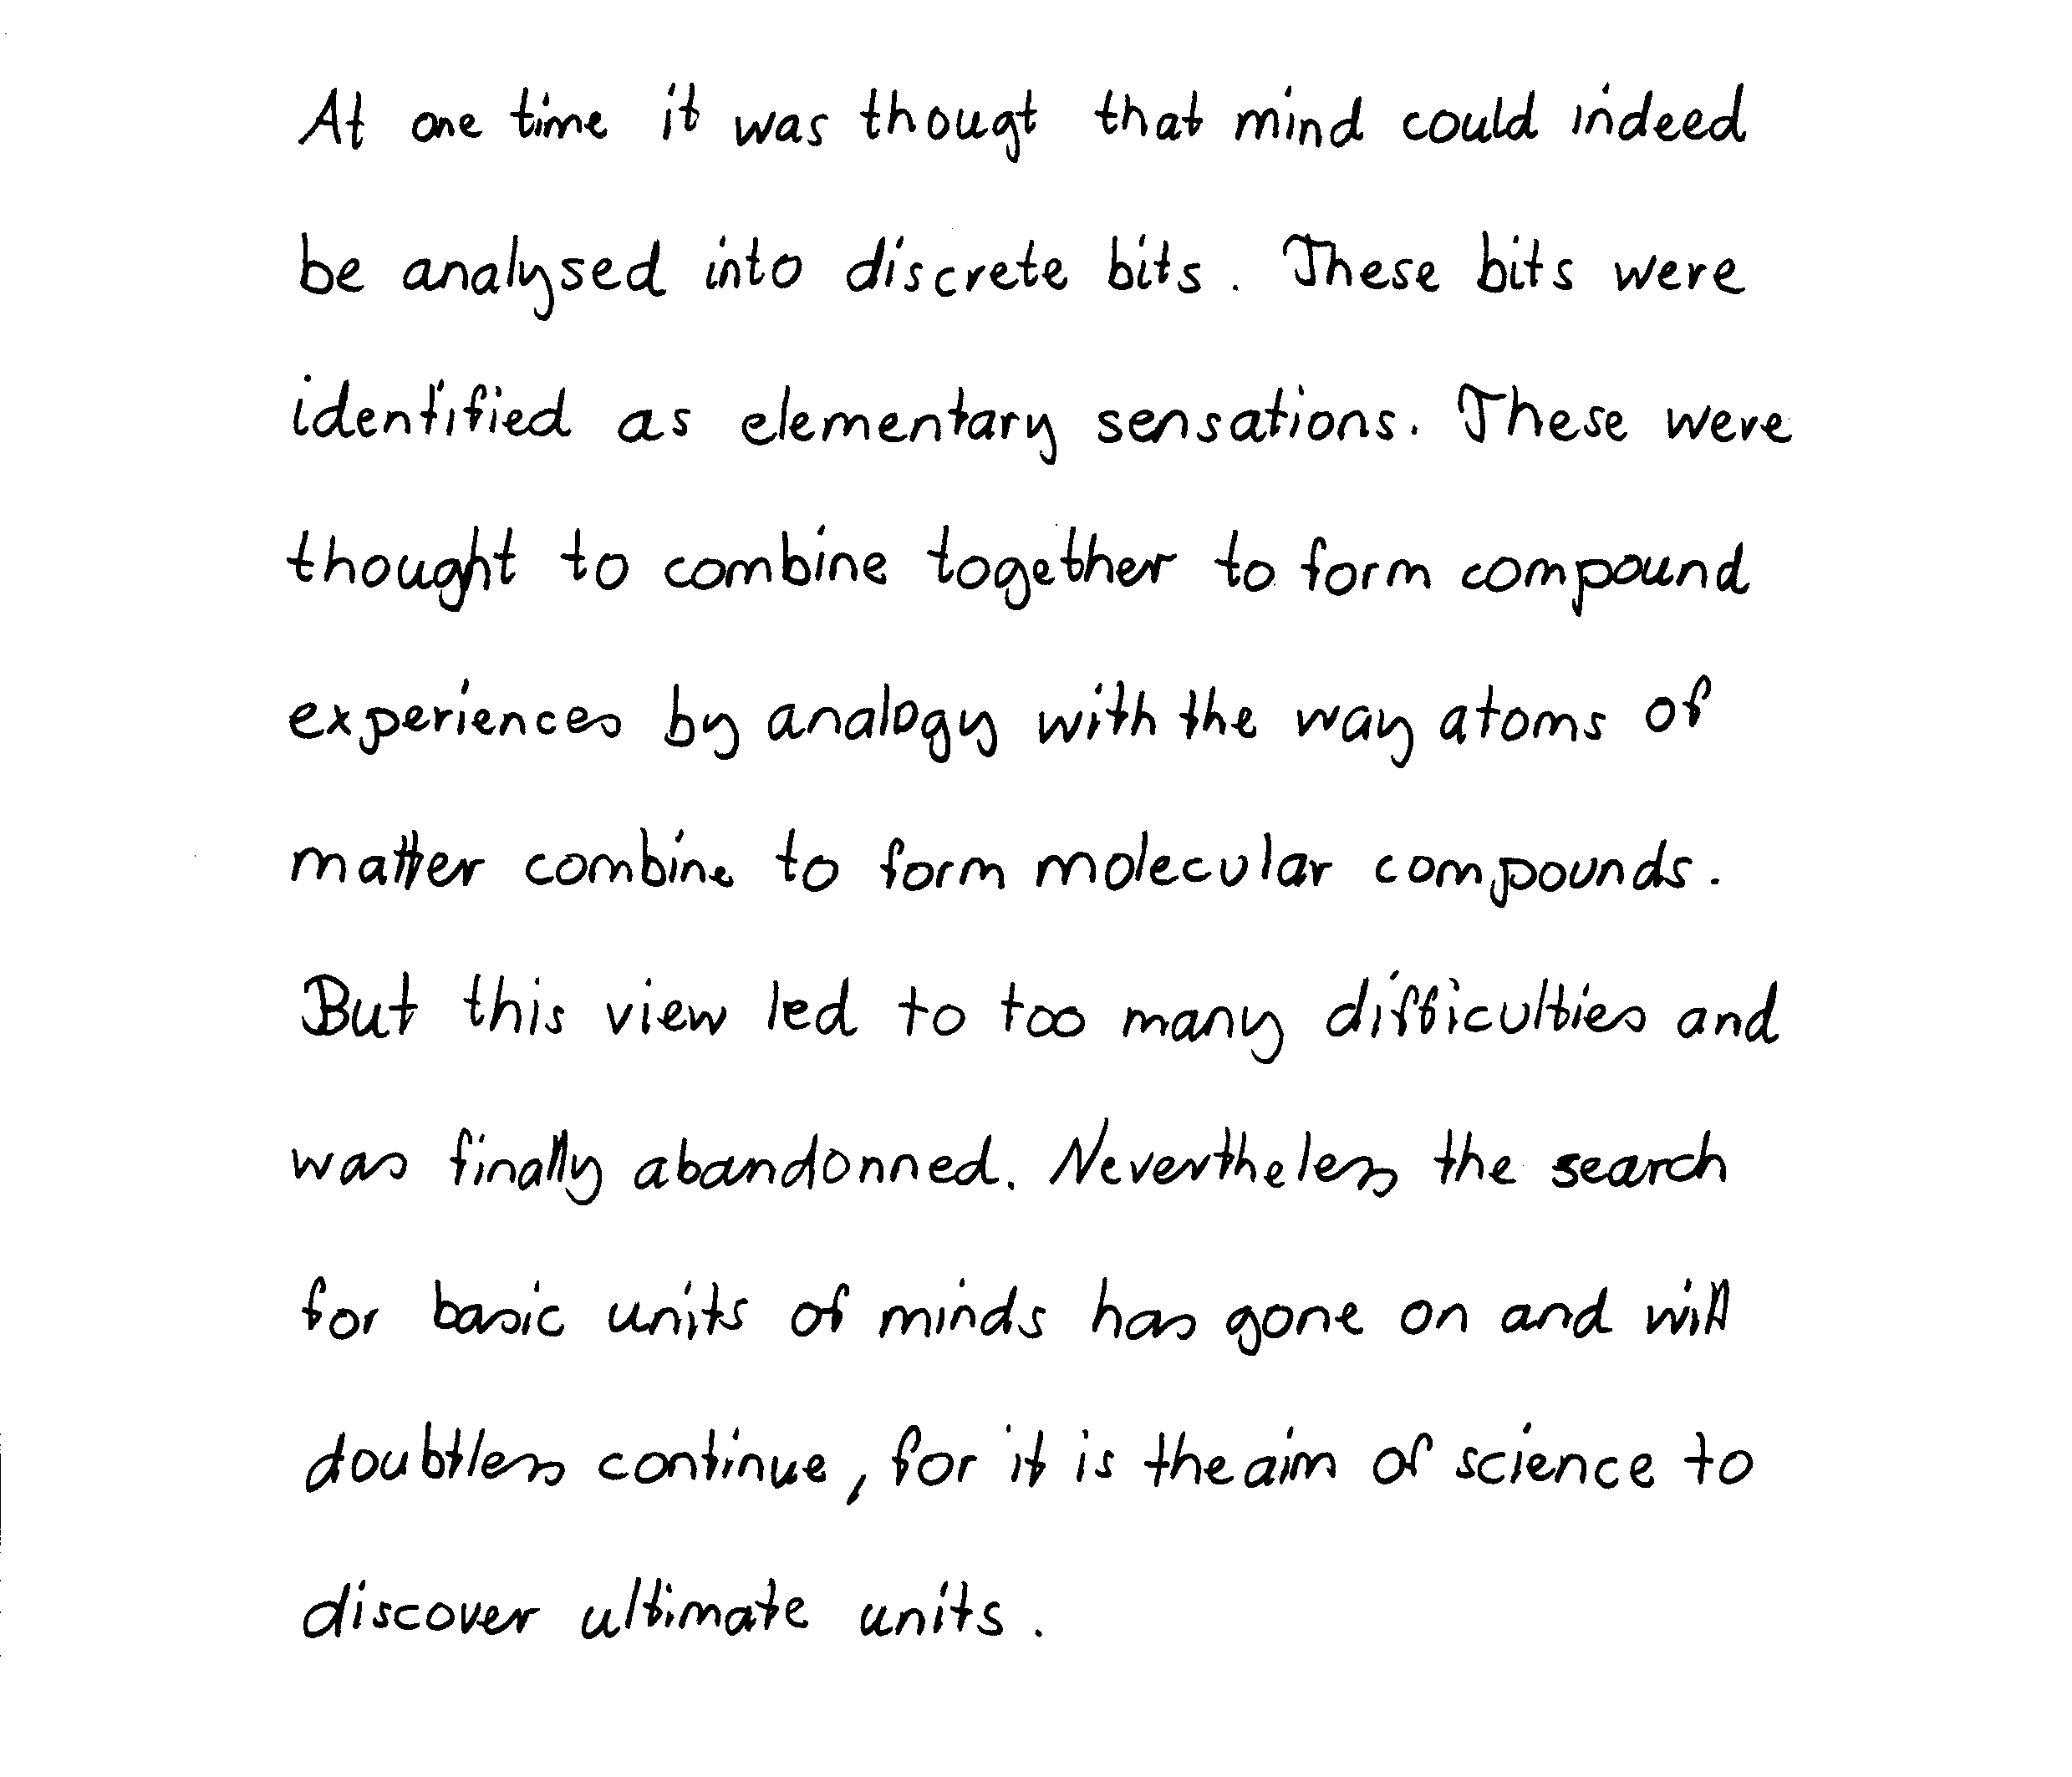 At one time it was thougt that mind could indeed
be analysed into discrete bits. These bits were
identified as elementary sensations. These were
thought to combine together to form compound
experiences by analogy with the way atoms of
matter combine to form molecular compounds.
But this view led to too many difficulties and
was finally abandonned. Nevertheless the search
for basic units of minds has gone on and will
doubtless continue, for it is the aim of science to
discover ultimate units.